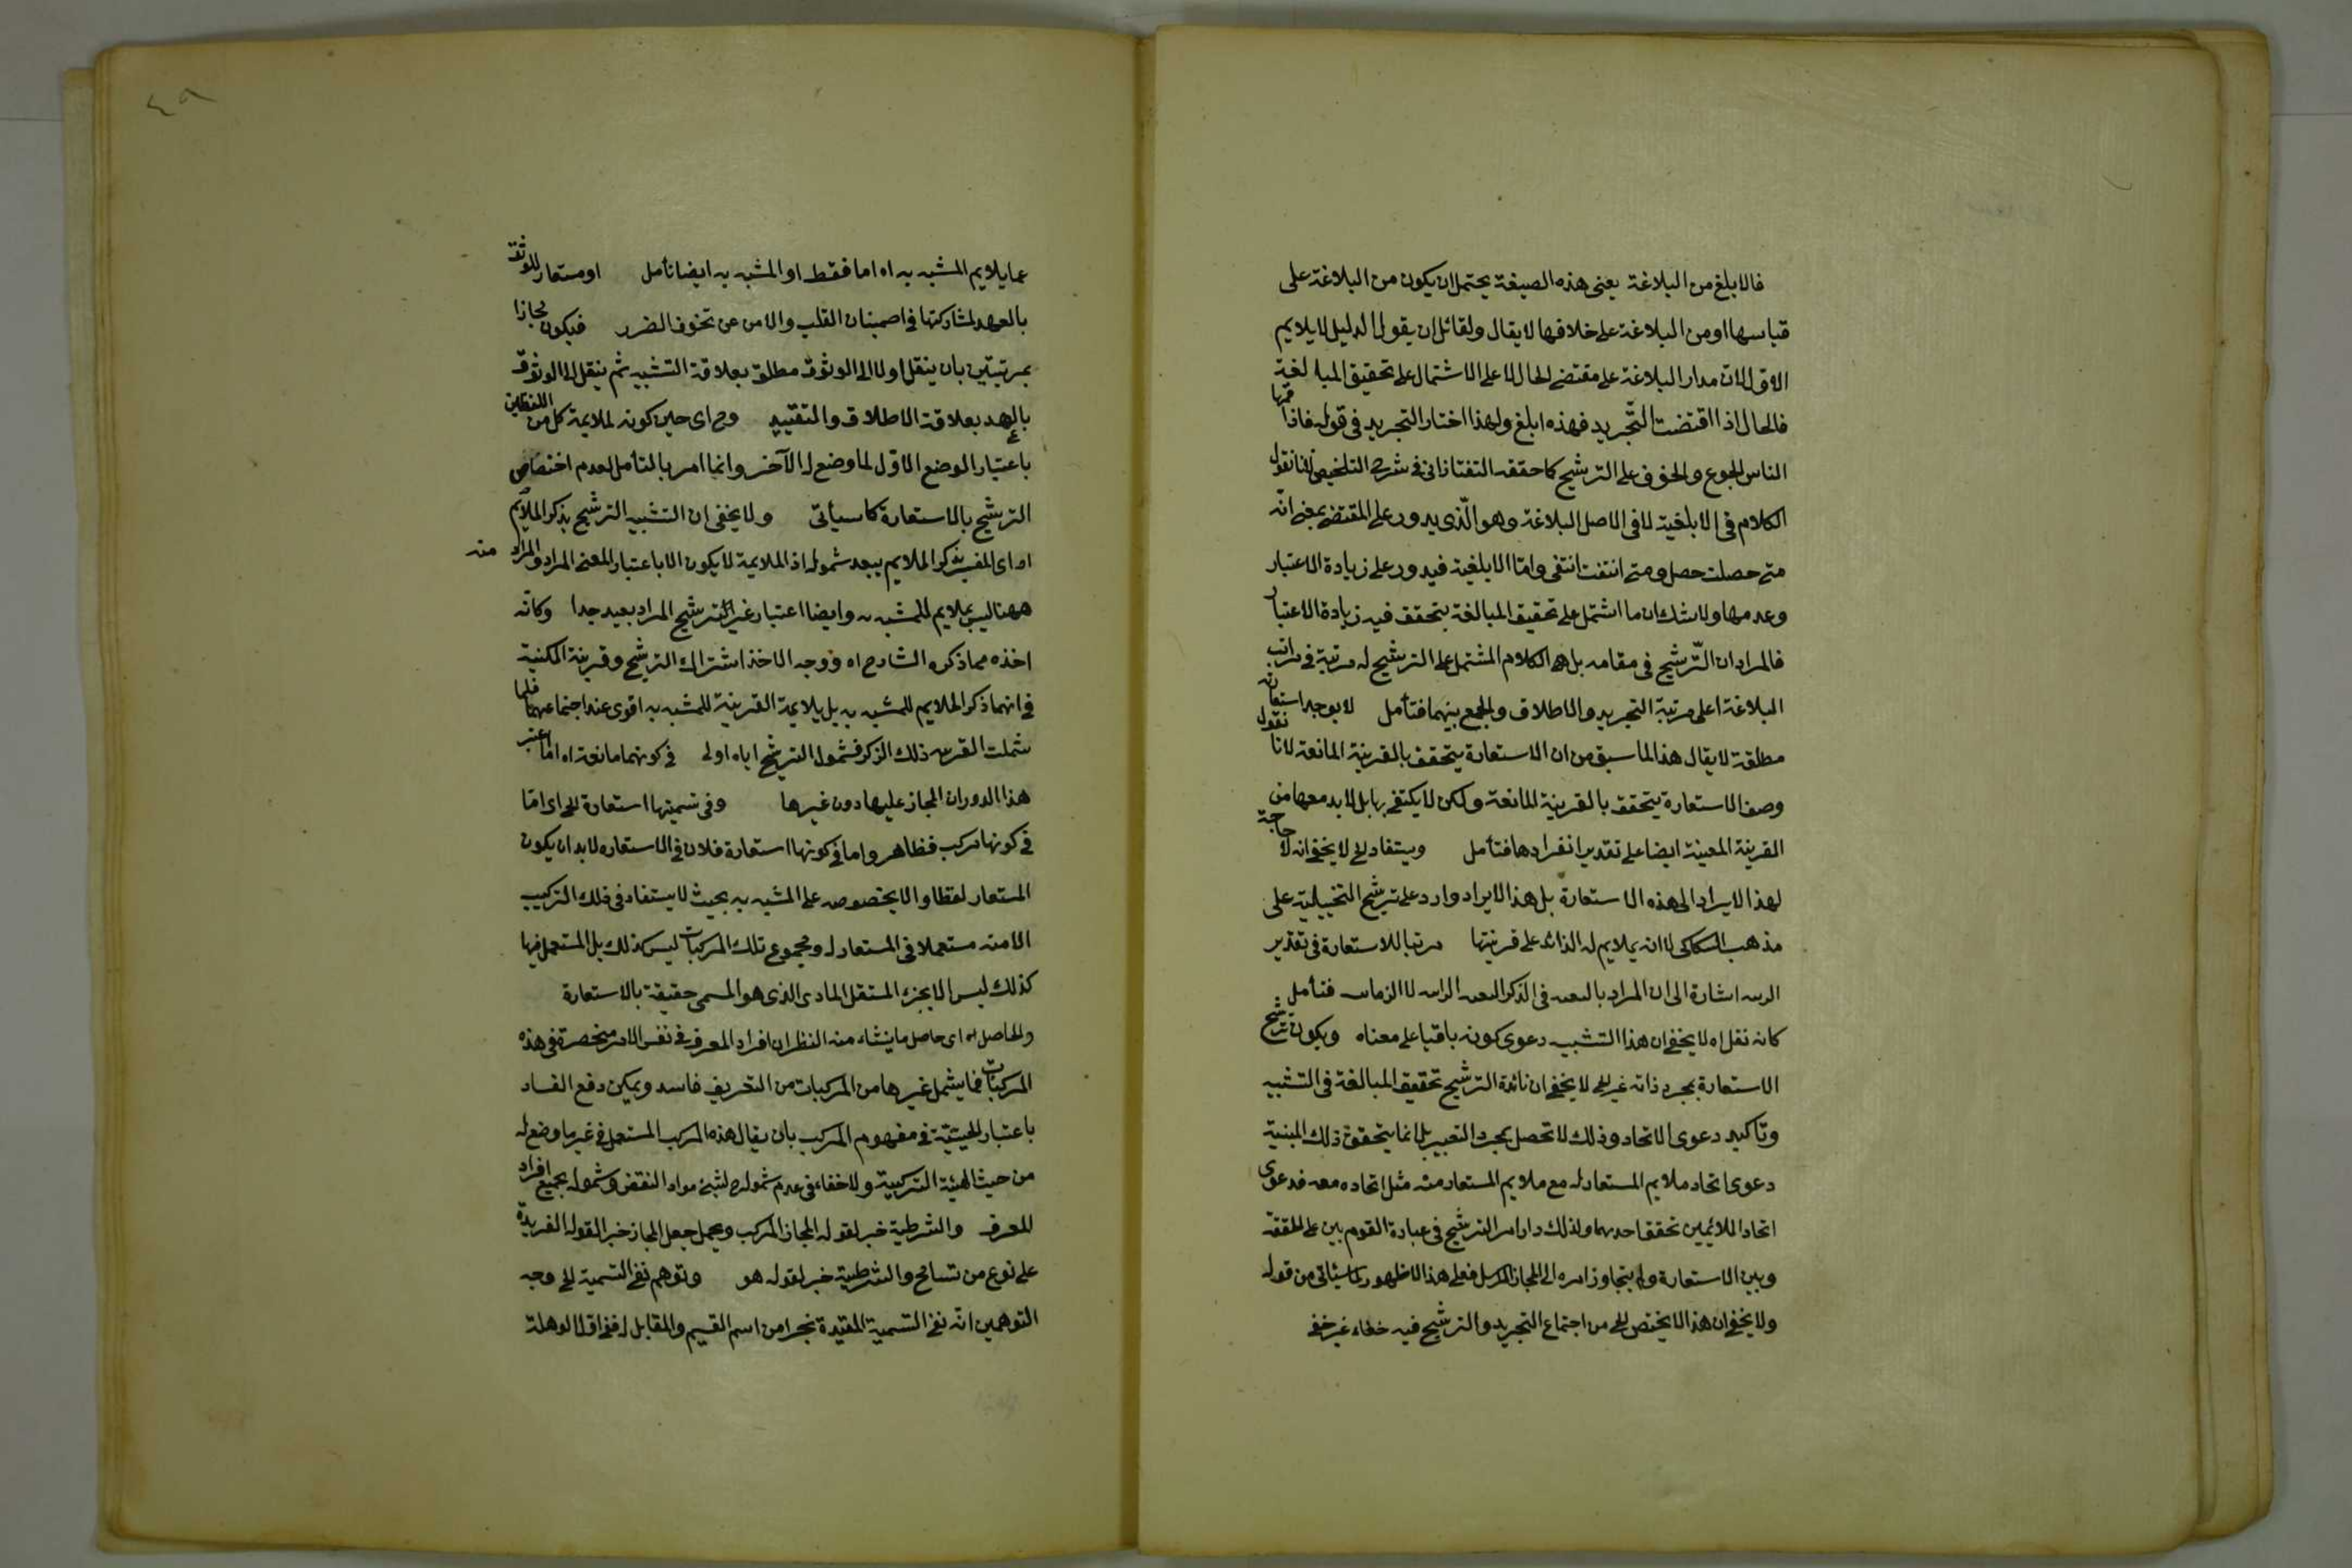 فالابلغ من البلاغة يعنى هذه الصيغة يحتمل ان يكون من البلاغة على
قياسها او من البلاغة على خلافها لا يقال ولقائل ان يقول الدليل لا يلايم
الاول لان مدار البلاغة على مقتضى الحال لا على الاشتمال على تحقيق المبالغة
فالحال اذا اقتضت التّجريد فهذه ابلغ ولهذا اختار التجريد فى قوله فاذاقها
الناس الجوع والخوف على الترشيح كما حققه التفتازانى فى شرح التلخيص لانا نقول
الكلام فى الابلغية لا فى الاصل البلاغة وهو الّذى يدور على المقتضى بمعنى انّه
متى حصلت حصل ومتى انتفت انتفى وامّا الابلغية فيدور على زيادة الاعتبار
وعدمها ولا شك ان ما اشتمل على تحقيق المبالغة يتحقق فيه زيادة الاعتبار
فالمراد ان التّرشيح فى مقامه بل الكلام المشتمل على الترشيح له مرتبة فى مراتب
البلاغة اعلى مرتبة التجريد والاطلاق والجمع بينهما فتأمل لا يوجد استعارة
مطلقة لا يقال هذا لما سبق من ان الاستعارة يتحقق بالقرينة المانعة لانا نقول
وصف الاستعارة يتحقق بالقرينة المانعة ولكن لا يكتفى بها بل لابد معها من
القرينة المعينة ايضا على تقدير انفرادها فتأمل ويستفاد الخ لا يخفى انه لا حاجة
لهذا الايراد الى هذه الاستعارة بل هذا الايراد وارد على ترشيح التخييلية على
مذهب السكاكى لا انه يملايم له الذائد على قرينتها مرتبا للاستعارة فى تقدير
اشارة الى ان المراد فى الذكر لا الزمان فتأمل
كانه نقل اه لا يخفى ان هذا التشبيه دعوى كونه باقيا على معناه ويكون ترشيح
الاستعارة بمجرد ذاته غير الخ لا يخفى ان فائدة الترشيح تحقيق المبالغة فى التشبيه
وتاكيد دعوى الاتحاد وذلك لا تحصل بمجرد التعبير بل انما يتحقق ذلك المبنية
دعوى اتحاد ملايم المستعار له مع ملايم المستعار منه مثل اتحاده معه فدعوى
اتحاد الملائمين تحقق احدهما ولذلك دار امر الترشيح فى عبارة القوم بين
وبين الاستعارة ولم يتجاوز امره الى المجاز المرسل فعلى هذا لا ظهور لما سيأتى من قوله
ولا يخفى ان هذا لا يختص الخ من اجتماع التجريد والترشيح فيه خفاء غير خفى
٤٩
عما يلايم المشبه به اه اما فقط او المشبه به ايضا تأمل او مستعار للوثوق
بالعهد لمشاركتها فى اصمينان القلب والامن عن تخوف الضرر فيكون مجازا
بمرتبتين بان ينقل اولا الى الوثوق مطلق بعلاقة التشبيه ثم ينقل الى الوثوق
بالعهد بعلاقة الاطلاق والتقييد وح اى حين كونه لملايمة كل من اللفظين
باعتبار الوضع الاوّل لما وضع له الآخر وانما امر بالتأمل لعدم اختصاص
الترشيح بالاستعارة كما سيأتى ولا يخفى ان التشبيه الترشيح بذكر الملايم
اه اى المفسر بذكر الملايم يبعد شموله اذ الملايمة لا يكون الا باعتبار المعنى المراد والمراد منه
ههنا ليس بملايم للمشبه به وايضا اعتبار غير الترشيح المراد بعيد جدا وكانّه
اخذه مما ذكره الشارح اه ووجه الاخذ اشتراك الترشيح وقرينة المكنية
فى انهما ذكر الملايم للمشبه به بل يلايمة القرينة للمشبه به اقوى عند اجتماعهما فلما
شملت القرينة ذلك الذكر فشمول الترشيح اياه اولى فى كونهما مانعة اه انّما اعتبر
هذا الدوران المجاز عليها دون غيرها وفى تسميتها استعارة الخ اى امّا
فى كونها مركب فظاهر واما فى كونها استعارة فلان فى الاستعاره لابد ان يكون
المستعار لفظا والا بخصوصه على المشبه به بحيث لا يستفاد فى ذلك التركيب
الا منه مستعملا فى المستعار له ومجموع تلك المركبات ليس كذلك بل المستعمل فيها
كذلك ليس الا بجزء المستقل المادى الذى هو المسمى حقيقة بالاستعارة
والحاصل اه اى حاصل ما ينشاء منه النظر ان افراد المعرف فى نفس الامر منحصرة فى هذه
المركبات فما يشمل غيرها من المركبات من التعريف فاسد ويمكن دفع الفساد
باعتبار الحيثيّة فى مفهوم المركب بان يقال هذه المركب المستعمل فى غير ما وضع له
من حيث الهيئة التركيبية ولا خفاء فى عدم شموله ح لشئ مواد النقض وشموله بجميع افراد
للمعرف والشرطية خبر لقوله المجاز المركب ويحمل جعل المجاز خبر القوله الفريدة
على نوع من تسامح والشرطية خبر لقوله هو وتوهم نفى التسمية الخ وجه
التوهمين انّه نفى التسمية المقيّدة بنجرا من اسم القسيم والمقابل له ففى اوّل الوهلة